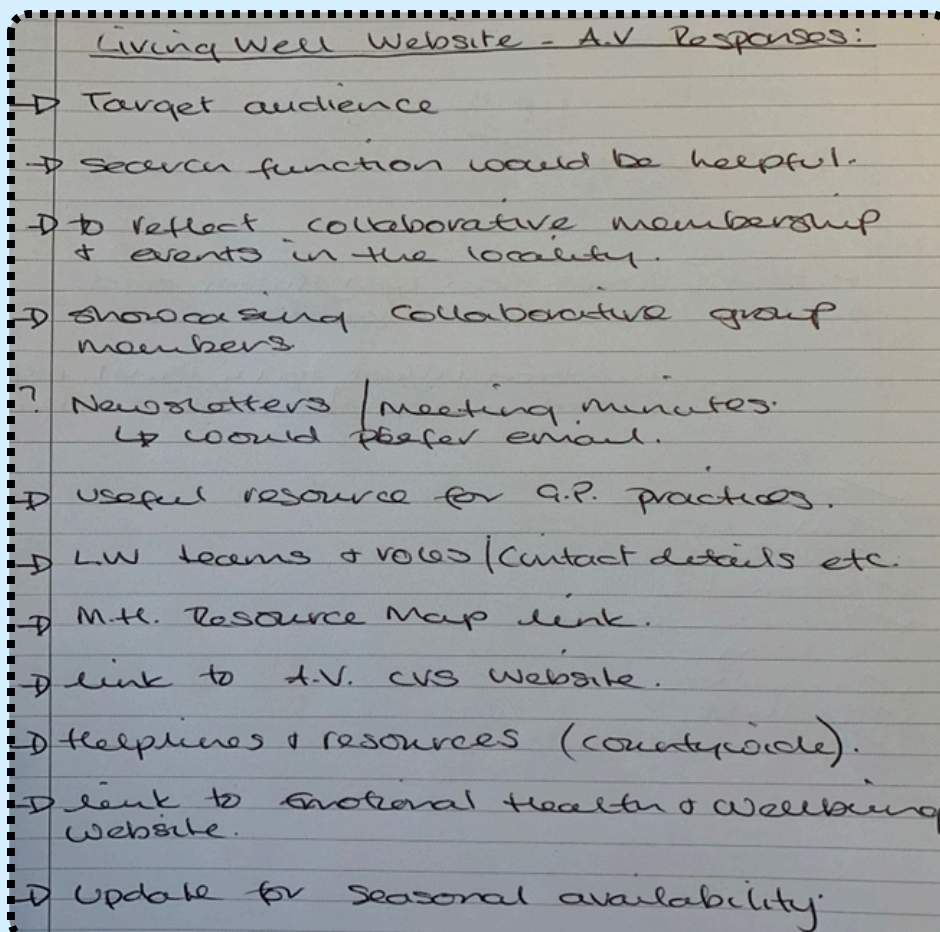 Living Well Website - A.V Responses:
→ Target audience
→ search function would be helpful.
→ to reflect collaborative membership
+ events in the locality.
→ showcasing collaborative group
members.
? Newsletters / meeting minutes.
↳ would prefer email.
→ useful resource for G.P. practices.
→ L.W teams + roles / Contact details etc.
→ M.H. Resource Map link.
→ link to A.V. CVS website.
→ Helplines + resources (countywide).
→ link to Emotional Health + Wellbeing
website.
→ Update for seasonal availability.